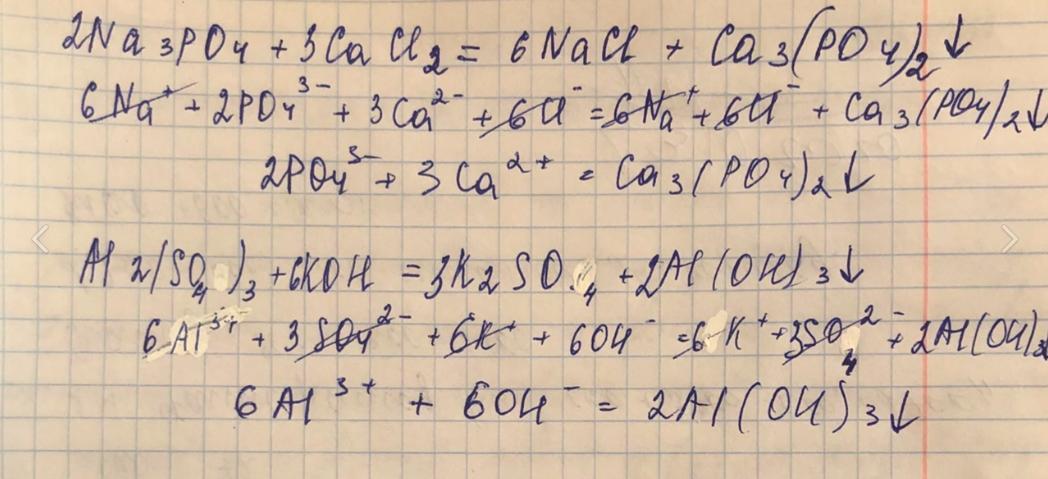 2Na₃PO₄ + 3CaCl₂ = 6NaCl + Ca₃(PO₄)₂↓
6Na⁺ + 2PO₄³⁻ + 3Ca²⁻ + 6Cl⁻ = 6Na⁺ + 6Cl⁻ + Ca₃(PO₄)₂↓
2PO₄³⁻ + 3Ca²⁺ = Ca₃(PO₄)₂↓
Al₂(SO₄)₃ + 6KOH = 3K₂SO₄ + 2Al(OH)₃↓
6Al³⁺ + 3SO₄²⁻ + 6K⁺ + 6OH⁻ = 6K⁺ + 3SO₄²⁻ + 2Al(OH)₃
6Al³⁺ + 6OH⁻ = 2Al(OH)₃↓